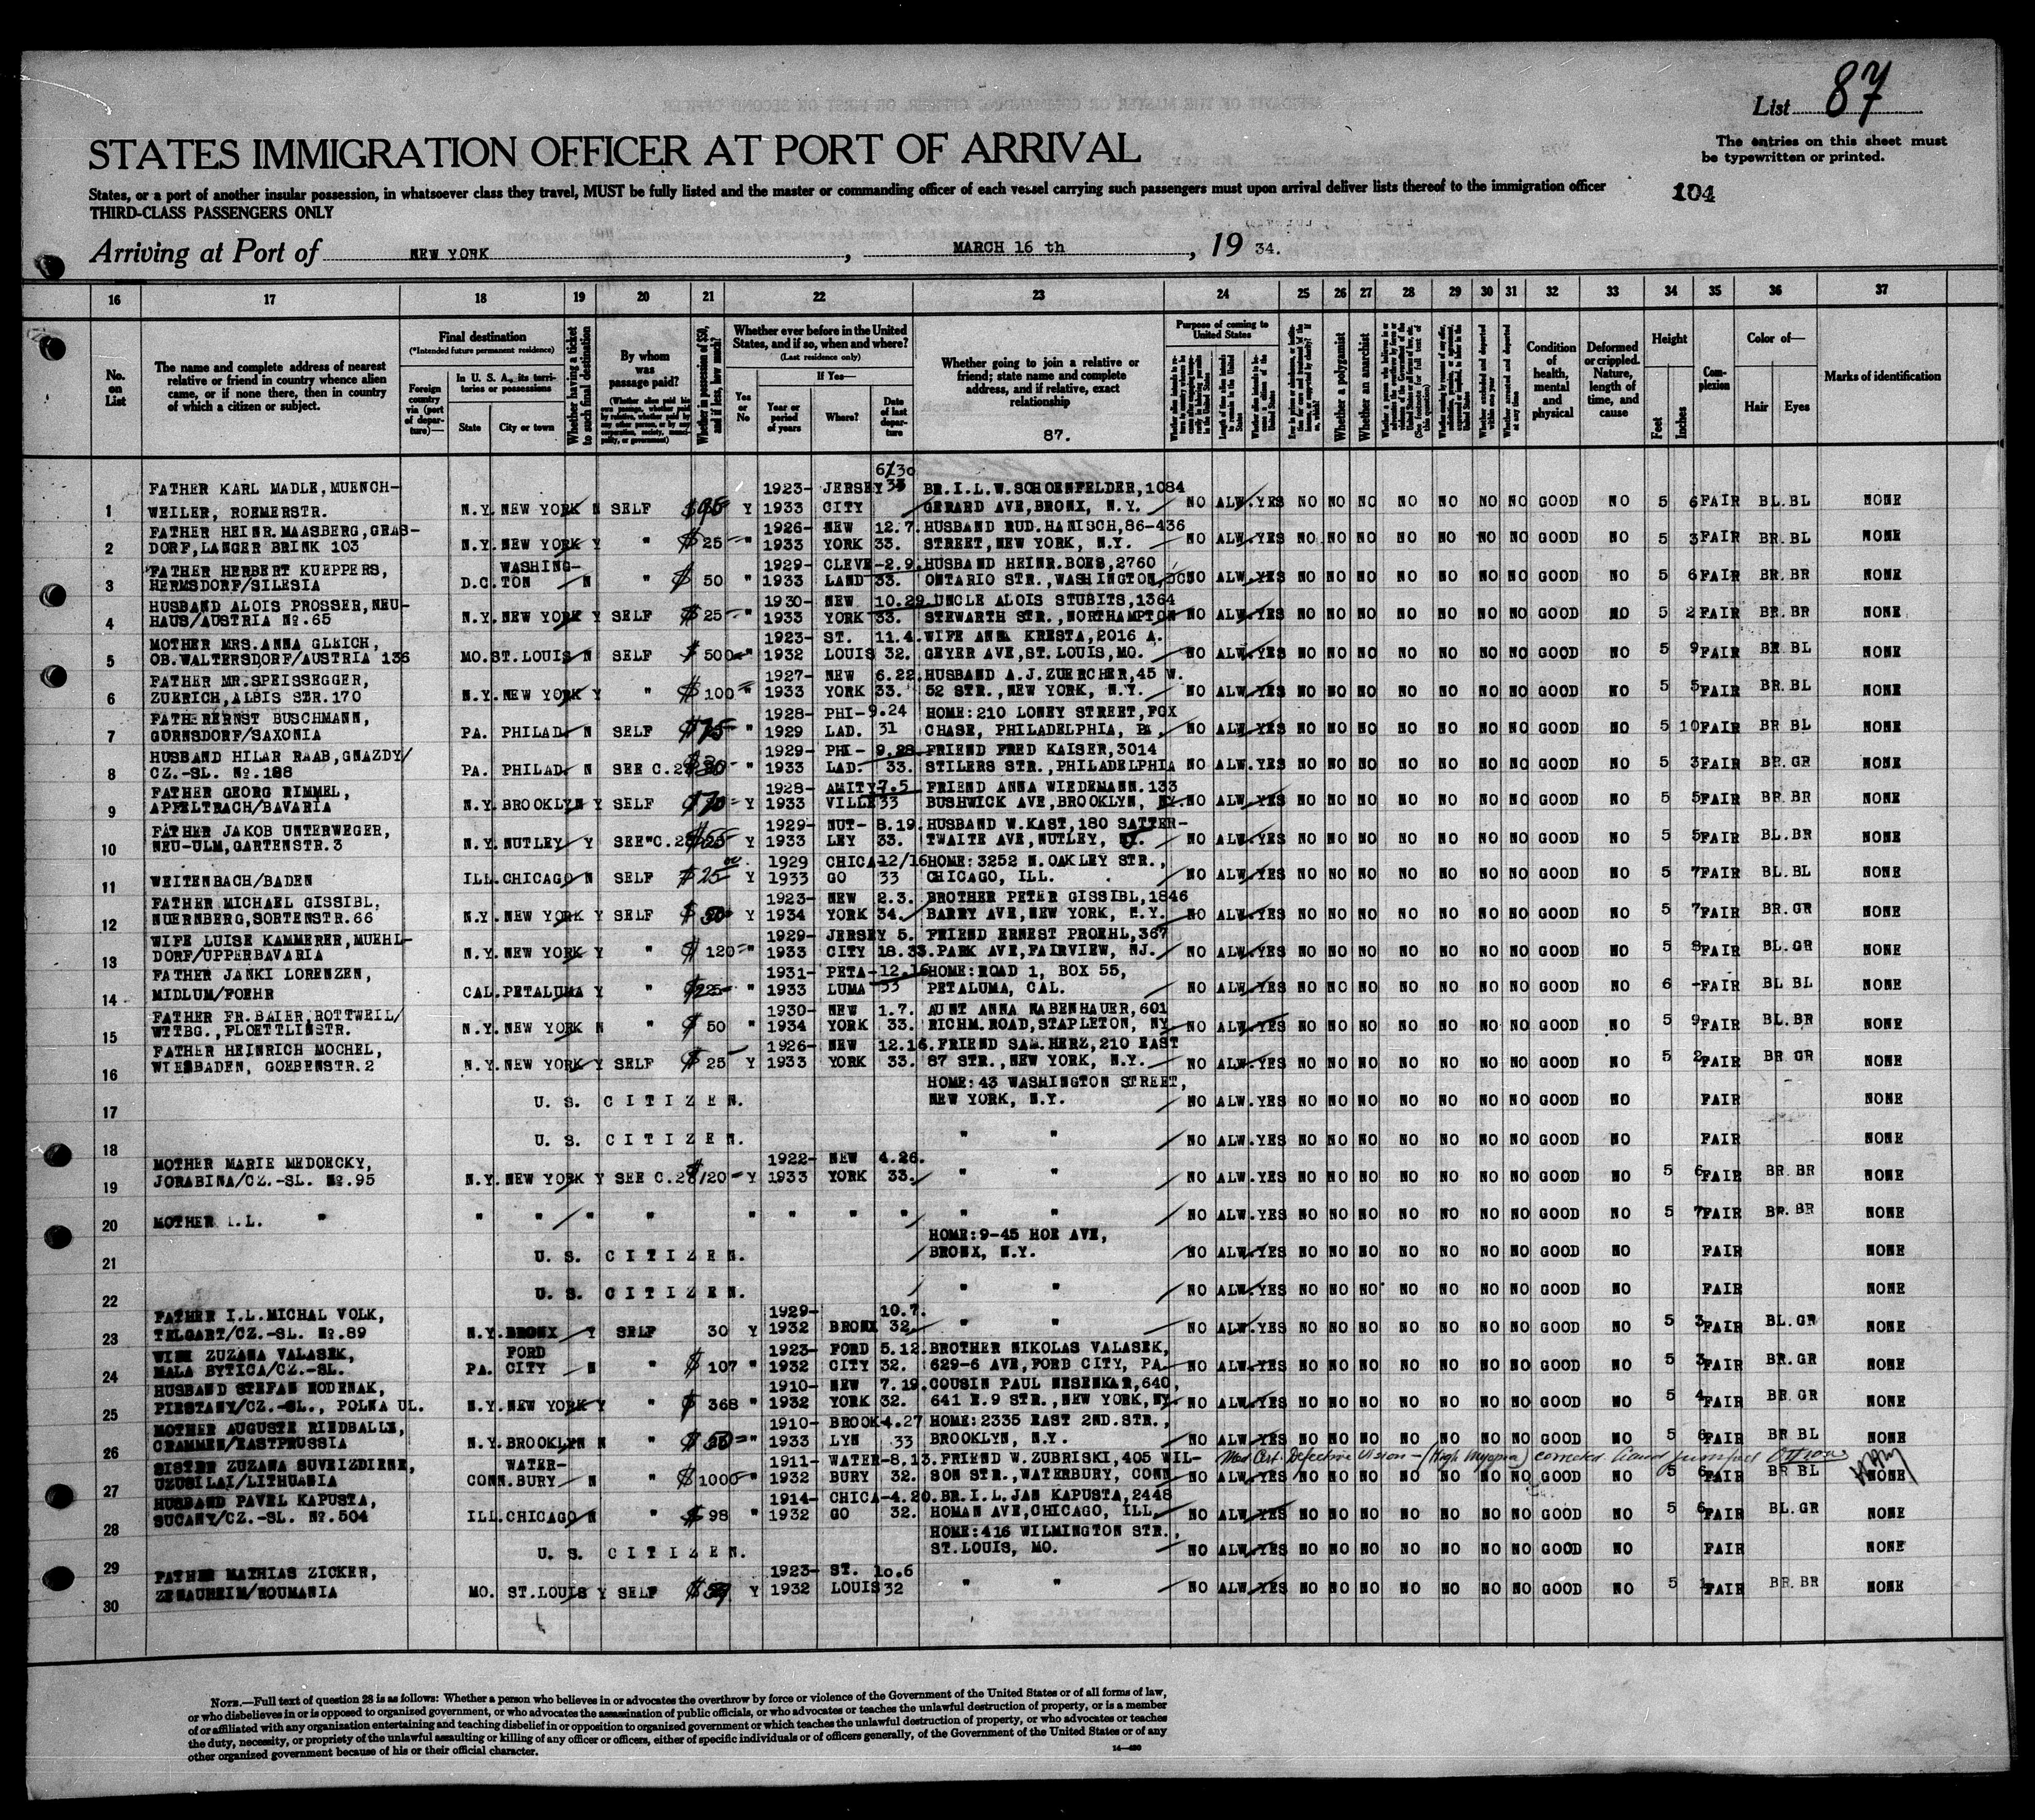 List 87
The entries on this sheet must
be typewritten or printed.
STATES IMMIGRATION OFFICER AT PORT OF ARRIVAL
States, or a port of another insular possession, in whatsoever class they travel, MUST be fully listed and the master or commanding officer of each vessel carrying such passengers must upon arrival deliver lists thereof to the immigration officer
THIRD-CLASS PASSENGERS ONLY
104
Arriving at Port of NEW YORK, MARCH 16 th, 19 34.
16 17 18 19 20 21 22 23 24 25 26 27 28 29 30 31 32 33 34 35 36 37
No. on List
The name and complete address of nearest relative or friend in country whence alien came, or if none there, then in country of which a citizen or subject.
Final destination
(*Intended future permanent residence)
Foreign country via (port of departure)—
In U. S. A., its territories or possessions
State
City or town
Whether having a ticket to such final destination
By whom was passage paid?
Whether in possession of $50, and if less, how much?
Whether ever before in the United States, and if so, when and where?
(Last residence only)
Yes or No
If Yes—
Year or period of years
Where?
Date of last departure
Whether going to join a relative or friend; state name and complete address, and if relative, exact relationship
87.
Purpose of coming to United States
Whether a polygamist
Whether an anarchist
Condition of health, mental and physical
Deformed or crippled. Nature, length of time, and cause
Height
Feet
Inches
Complexion
Color of—
Hair
Eyes
Marks of identification
6/30
FATHER KARL MADLE, MUENCH- 1923- JERSEY 33 BR.I.L.W.SCHOENFELDER,1084
1 WEILER, ROEMERSTR. N.Y. NEW YORK N SELF Y 1933 CITY GERARD AVE,BRONX, N.Y. NO ALW. YES NO NO NO NO NO NO NO GOOD NO 5 6 FAIR BL.BL NONE
FATHER HEINR.MAASBERG,GRAS- 1926- NEW 12.7. HUSBAND RUD.HANISCH,86-436
2 DORF,LANGER BRINK 103 N.Y. NEW YORK Y " $ 25 " 1933 YORK 33. STREET,NEW YORK, N.Y. NO ALW. YES NO NO NO NO NO NO NO GOOD NO 5 3 FAIR BR.BL NONE
FATHER HERBERT KUEPPERS, WASHING- 1929- CLEVE- 2.9. HUSBAND HEINR.BOES,2760
3 HERMSDORF/SILESIA D.C. TON N " $ 50 " 1933 LAND 33. ONTARIO STR.,WASHINGTON,DC NO ALW. YES NO NO NO NO NO NO NO GOOD NO 5 6 FAIR BR.BR NONE
HUSBAND ALOIS PROSSER,NEU- 1930- NEW 10.29. UNCLE ALOIS STUBITS,1364
4 HAUS/AUSTRIA No.65 N.Y. NEW YORK Y SELF $ 25 " 1933 YORK 33. STEWARTH STR.,NORTHAMPTON NO ALW. YES NO NO NO NO NO NO NO GOOD NO 5 2 FAIR BR.BR NONE
MOTHER MRS.ANNA GLEICH, 1923- ST. 11.4. WIFE ANNA KRESTA,2016 A.
5 OB.WALTERSDORF/AUSTRIA 136 MO. ST.LOUIS N SELF $ 500 " 1932 LOUIS 32. GEYER AVE,ST.LOUIS,MO. NO ALW. YES NO NO NO NO NO NO NO GOOD NO 5 9 FAIR BR BL NONE
FATHER MR.SPEISSEGGER, 1927- NEW 6.22. HUSBAND A.J.ZUERCHER,45 W.
6 ZUERICH,ALBIS STR.170 N.Y. NEW YORK Y " $ 100 " 1933 YORK 33. 52 STR.,NEW YORK, N.Y. NO ALW. YES NO NO NO NO NO NO NO GOOD NO 5 5 FAIR BR.BL NONE
FATHERERNST BUSCHMANN, 1928- PHI- 9.24 HOME:210 LONEY STREET,FOX
7 GORNSDORF/SAXONIA PA. PHILAD. N SELF $75 " 1929 LAD. 31 CHASE, PHILADELPHIA, PA, NO ALW. YES NO NO NO NO NO NO NO GOOD NO 5 10 FAIR BR BL NONE
HUSBAND HILAR RAAB,GNAZDY/ 1929- PHI- 9.28. FRIEND FRED KAISER,3014
8 CZ.-SL. No.188 PA. PHILAD. N SEE C.2 $30 " 1933 LAD. 33. STILERS STR.,PHILADELPHIA NO ALW. YES NO NO NO NO NO NO NO GOOD NO 5 3 FAIR BR.GR NONE
FATHER GEORG RIMMEL, 1928- AMITY 7.5 FRIEND ANNA WIEDEMANN.133
9 APFELTRACH/BAVARIA N.Y. BROOKLYN Y SELF $70 Y 1933 VILLE 33 BUSHWICK AVE,BROOKLYN, NY. NO ALW. YES NO NO NO NO NO NO NO GOOD NO 5 5 FAIR BR.BR NONE
FATHER JAKOB UNTERWEGER, 1929- NUT- 8.19. HUSBAND W.KAST,180 SATTER-
10 NEU-ULM,GARTENSTR.3 N.Y. NUTLEY Y SEE"C.2 Y 1933 LEY 33. TWAITE AVE,NUTLEY, NJ. NO ALW. YES NO NO NO NO NO NO NO GOOD NO 5 5 FAIR BL.BR NONE
1929 CHICA- 12/16 HOME:3252 N.OAKLEY STR.,
11 WEITENBACH/BADEN ILL. CHICAGO N SELF $25 00 Y 1933 GO 33 CHICAGO, ILL. NO ALW. YES NO NO NO NO NO NO NO GOOD NO 5 7 FAIR BL.BL NONE
FATHER MICHAEL GISSIBL, 1923- NEW 2.3. BROTHER PETER GISSIBL,1846
12 NUERNBERG,SORTENSTR.66 N.Y. NEW YORK Y SELF $ 50 Y 1934 YORK 34. BARRY AVE,NEW YORK, N.Y. NO ALW. YES NO NO NO NO NO NO NO GOOD NO 5 7 FAIR BR.GR NONE
WIFE LUISE KAMMERER,MUEHL- 1929- JERSEY 5. FRIEND ERNEST PROEHL,367
13 DORF/UPPERBAVARIA N.Y. NEW YORK Y " $ 120 " 1933 CITY 18.33. PARK AVE,FAIRVIEW, NJ. NO ALW. YES NO NO NO NO NO NO NO GOOD NO 5 8 FAIR BL.GR NONE
FATHER JANKI LORENZEN, 1931- PETA- 12.16 HOME:ROAD 1, BOX 55,
14 MIDLUM/FOEHR CAL. PETALUMA Y " $225 " 1933 LUMA 33 PETALUMA, CAL. NO ALW. YES NO NO NO NO NO NO NO GOOD NO 6 - FAIR BL BL NONE
FATHER FR.BAIER,ROTTWEIL/ 1930- NEW 1.7. AUNT ANNA NABENHAUER,601
15 WTTBG.,FLOETTLINSTR. N.Y. NEW YORK N " $ 50 " 1934 YORK 33. RICHM.ROAD,STAPLETON, NY NO ALW. YES NO NO NO NO NO NO NO GOOD NO 5 9 FAIR BL.BR NONE
FATHER HEINRICH MOCHEL, 1926- NEW 12.16. FRIEND SAM.HERZ,210 EAST
16 WIESBADEN, GOEBENSTR.2 N.Y. NEW YORK Y SELF $ 25 Y 1933 YORK 33. 87 STR.,NEW YORK, N.Y. NO ALW. YES NO NO NO NO NO NO NO GOOD NO 5 2 FAIR BR GR NONE
HOME:43 WASHINGTON STREET,
17 U. S. CITIZEN. NEW YORK, N.Y. NO ALW. YES NO NO NO NO NO NO NO GOOD NO FAIR NONE
18 U. S. CITIZEN. " " NO ALW. YES NO NO NO NO NO NO NO GOOD NO FAIR NONE
MOTHER MARIE MEDOECKY, 1922- NEW 4.26.
19 JORABINA/CZ.-SL. No.95 N.Y. NEW YORK Y SEE C.2 $120 Y 1933 YORK 33. " " NO ALW. YES NO NO NO NO NO NO NO GOOD NO 5 6 FAIR BR.BR NONE
20 MOTHER I.L. " " " " " " " " " " " NO ALW. YES NO NO NO NO NO NO NO GOOD NO 5 7 FAIR BR.BR NONE
HOME:9-45 HOE AVE,
21 U. S. CITIZEN. BRONX, N.Y. NO ALW. YES NO NO NO NO NO NO NO GOOD NO FAIR NONE
22 U. S. CITIZEN. " " NO ALW. YES NO NO NO NO NO NO NO GOOD NO FAIR NONE
FATHER I.L.MICHAL VOLK, 1929- 10.7.
23 TELGART/CZ.-SL. No.89 N.Y. BRONX Y SELF 30 Y 1932 BRONX 32 " " NO ALW. YES NO NO NO NO NO NO NO GOOD NO 5 3 FAIR BL.GR NONE
WIFE ZUZANA VALASEK, FORD 1923- FORD 5.12. BROTHER NIKOLAS VALASEK,
24 MALA BYTICA/CZ.-SL. PA. CITY N " $ 107 " 1932 CITY 32. 629-6 AVE,FORD CITY, PA. NO ALW. YES NO NO NO NO NO NO NO GOOD NO 5 3 FAIR BR.GR NONE
HUSBAND STEFAN NODENAK, 1910- NEW 7.19. COUSIN PAUL NESENKAR,640,
25 PIESTANY/CZ.-SL., POLNA UL. N.Y. NEW YORK Y " $ 368 " 1932 YORK 32. 641 E.9 STR.,NEW YORK,NY NO ALW. YES NO NO NO NO NO NO NO GOOD NO 5 4 FAIR BR.GR NONE
MOTHER AUGUSTE RIEDBALLE, 1910- BROOK- 4.27 HOME:2335 EAST 2ND.STR.,
26 CRAMMEN/EASTPRUSSIA N.Y. BROOKLYN N " $ 50 " 1933 LYN 33 BROOKLYN, N.Y. NO ALW. YES NO NO NO NO NO NO NO GOOD NO 5 6 FAIR BR BL NONE
SISTER ZUZANA SUVEIZDIENE, WATER- 1911- WATER- 8.13. FRIEND W.ZUBRISKI,405 WIL- Med Cert. Defective Vision - (High Myopia) corrected
27 UZUSILAI/LITHUANIA CONN. BURY N " $ 1000 " 1932 BURY 32. SON STR.,WATERBURY, CONN NO ALW. YES NO NO NO NO NO NO NO GOOD NO 5 6 FAIR BR BL NONE
HUSBAND PAVEL KAPUSTA, 1914- CHICA- 4.20. BR.I.L.JAN KAPUSTA,2448
28 SUCANY/CZ.-SL. No.504 ILL. CHICAGO N " $ 98 " 1932 GO 32. HOMAN AVE,CHICAGO, ILL. NO ALW. YES NO NO NO NO NO NO NO GOOD NO 5 6 FAIR BL.GR NONE
HOME:416 WILMINGTON STR.,
29 U. S. CITIZEN. ST.LOUIS, MO. NO ALW. YES NO NO NO NO NO NO NO GOOD NO FAIR NONE
FATHER MATHIAS ZICKER, 1923- ST. 10.6
30 ZENAUHEIM/ROUMANIA MO. ST.LOUIS Y SELF Y 1932 LOUIS 32 " " NO ALW. YES NO NO NO NO NO NO NO GOOD NO 5 1 FAIR BR.BR NONE
NOTE.—Full text of question 28 is as follows: Whether a person who believes in or advocates the overthrow by force or violence of the Government of the United States or of all forms of law,
or who disbelieves in or is opposed to organized government, or who advocates the assassination of public officials, or who advocates or teaches the unlawful destruction of property, or is a member
of or affiliated with any organization entertaining and teaching disbelief in or opposition to organized government or which teaches the unlawful destruction of property, or who advocates or teaches
the duty, necessity, or propriety of the unlawful assaulting or killing of any officer or officers, either of specific individuals or of officers generally, of the Government of the United States or of any
other organized government because of his or their official character.
14—480